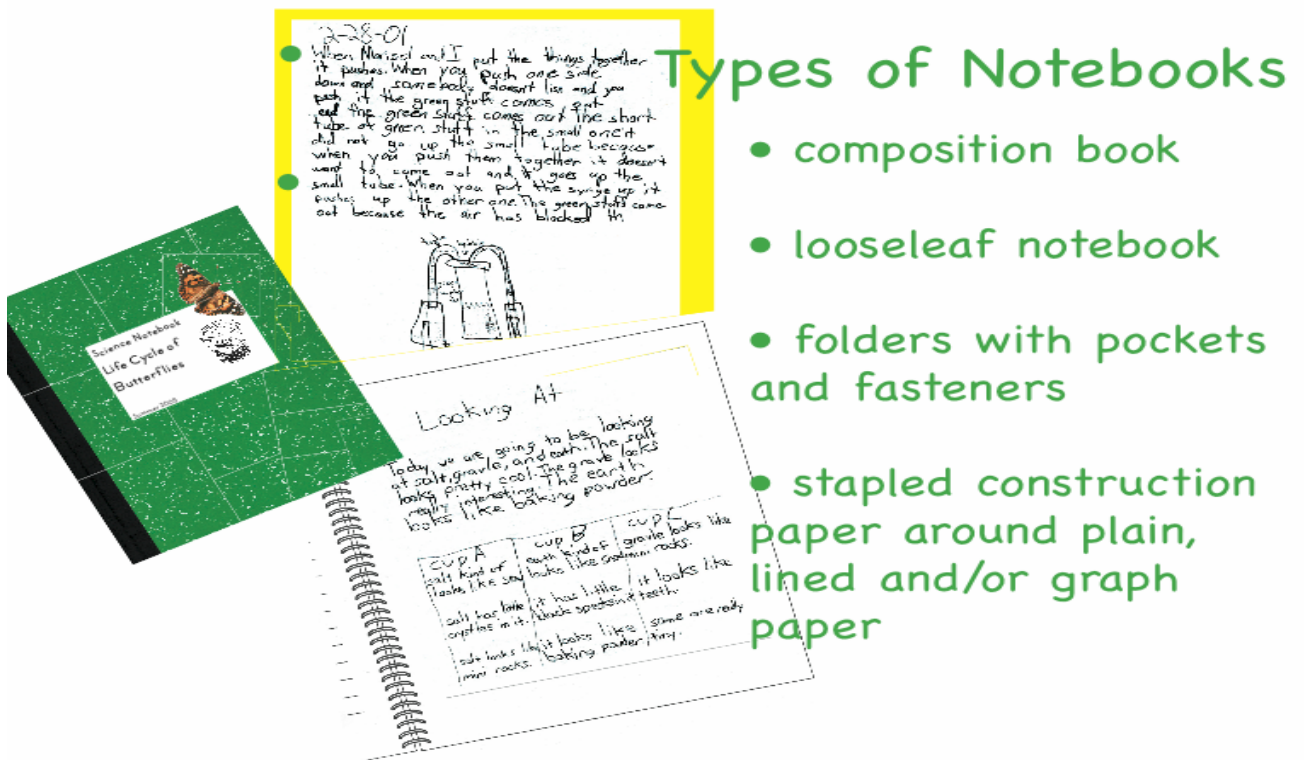 Types of Notebooks
• composition book
• looseleaf notebook
• folders with pockets
and fasteners
• stapled construction
paper around plain,
lined and/or graph
paper
2-28-01
When Marisol and I put the things together
it pushes. When you push one side
down and somebody doesn't and you
push it the green stuff comes out
and the green stuff comes out the short
tube of green stuff in the small one it
did not go up the small tube because
when you push them together it doesn't
want to come out and it goes up the
small tube. When you put the up it
pushes up the other one. The green stuff came
out because the air has blocked th
Science Notebook
Life Cycle of
Butterflies
Looking At
Today we are going to be looking
at salt, gravle, and earth. The salt
looks pretty cool. The gravle looks
really interesting. The earth
looks like baking powder.
cup A cup B cup C
salt kind of earth kind of gravle looks like
looks like looks like rocks.
salt has little it has little it looks like
in it. black teeth.
salt looks it looks like some are really
mini rocks. baking powder tiny.